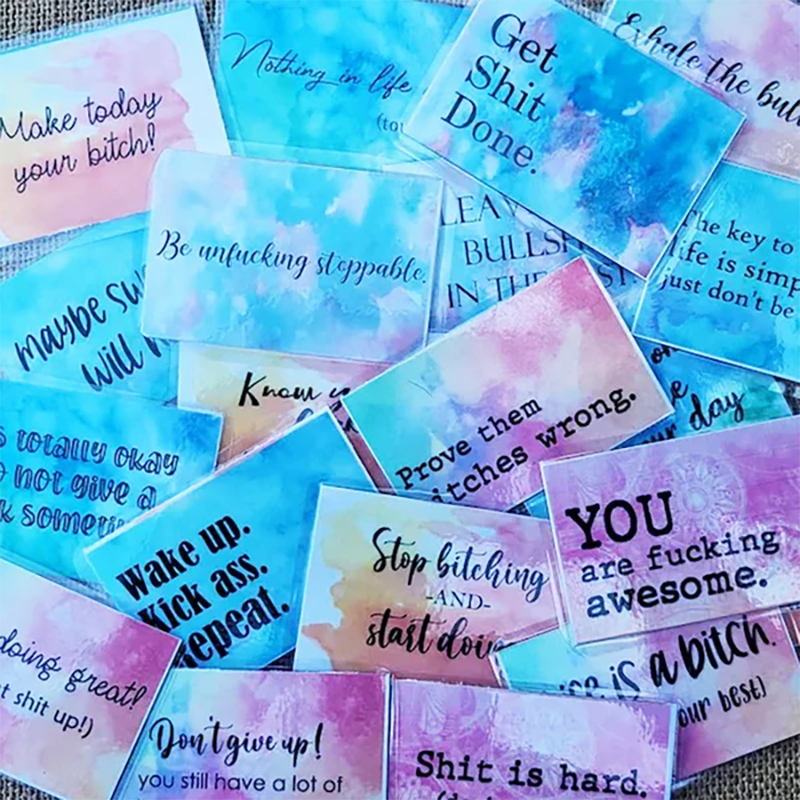 Make today
your bitch!
Nothing in life
(to
Get
Shit
Done.
Exhale the bull
Be unfucking stoppable.
LEAV
BULLSH
IN THE PAST.
The key to
life is simp
just don't be
maybe sw
will
Know
Prove them
bitches wrong.
day
s totally okay
o not give a
k someti
Wake up.
Kick ass.
Repeat.
Stop bitching
-AND-
start doin
YOU
are fucking
awesome.
doing great!
t shit up!)
is a bitch.
our best)
Don't give up!
you still have a lot of
Shit is hard.